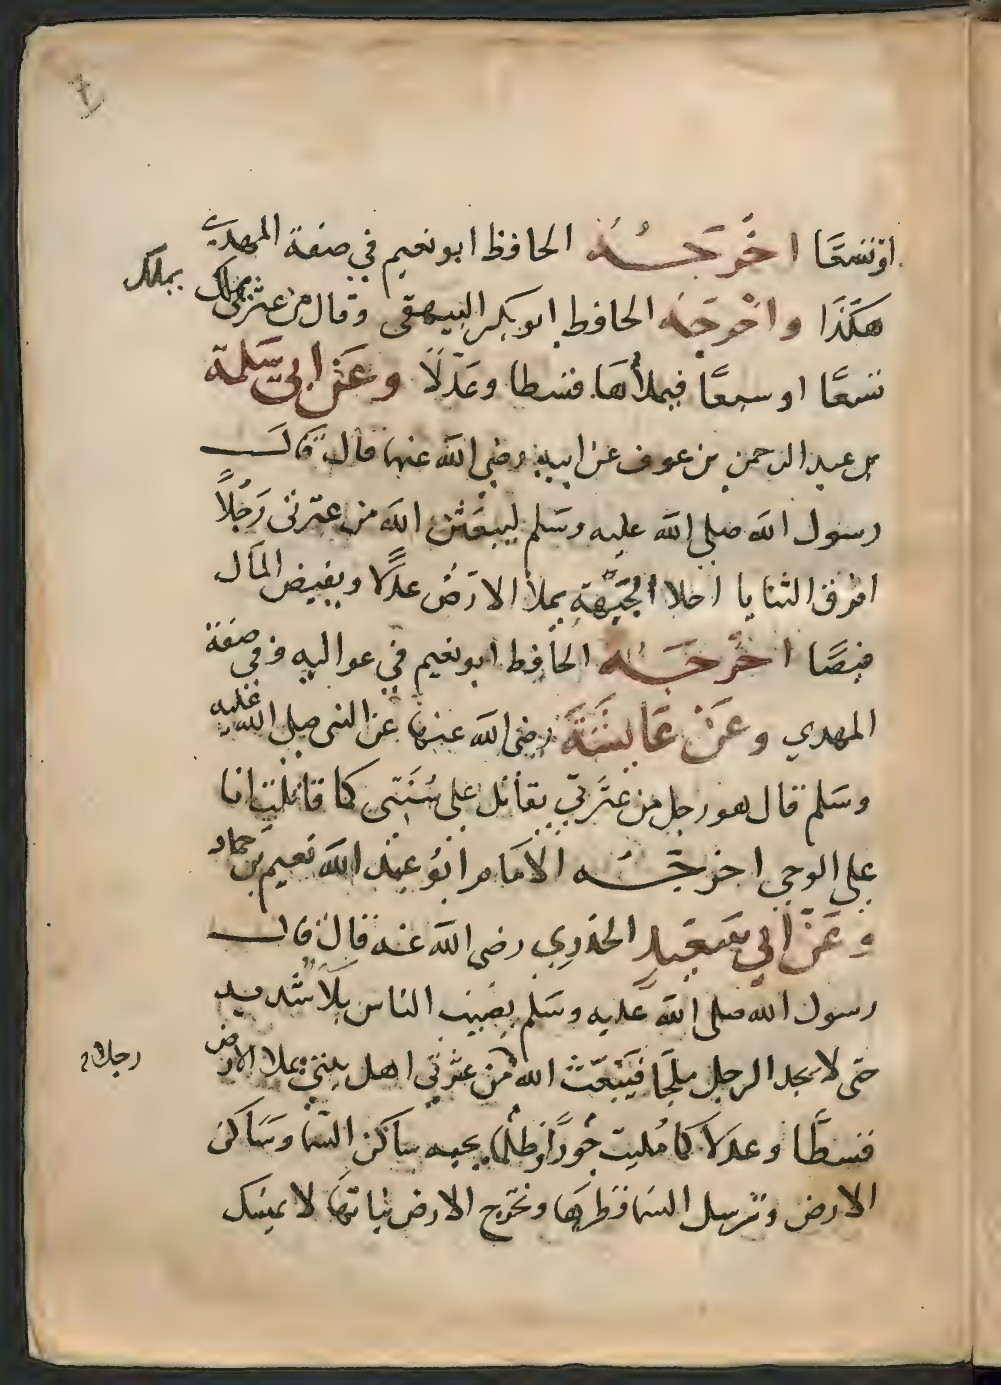 او تسعا اخرجه الحافظ ابو نعيم في صفة المهدي
هكذا واخرجه الحافظ ابو بكر البيهقي وقال من عترتي يملك
يملك
تسعًا او سبعًا فيملأها قسطا وعدلًا وعن ابي سلمة
بن عبد الرحمن بن عوف عن ابيه رضي الله عنهما قال قال
رسول الله صلى الله عليه وسلم ليبعثن الله من عترتي رَجُلًا
افرق الثنايا اجلا الجبهة يملأ الارض عدلًا ويفيض المال
فيضًا اخرجه الحافظ ابو نعيم في عواليه وفي صفة
المهدي وعن عايشة رضي الله عنها عن النبي صلى الله عليه
وسلم قال هو رجل من عترتي يقاتل على سنتي كما قاتلت انا
على الوحي اخرجه الامام ابو عبد الله نعيم بن حماد
وعن ابي سعيد الخدري رضي الله عنه قال قال
رسول الله صلى الله عليه وسلم يصيب الناس بلاء شديد
حتى لا يجد الرجل ملجا فيبعث الله من عترتي اهل بيتي يملا الارض
رجلا
قسطًا وعدلًا كما مليت جورًا وظلمًا يحبه ساكن السما وساكن
الارض وترسل السما قطرها وتخرج الارض نباتها لا تمسك